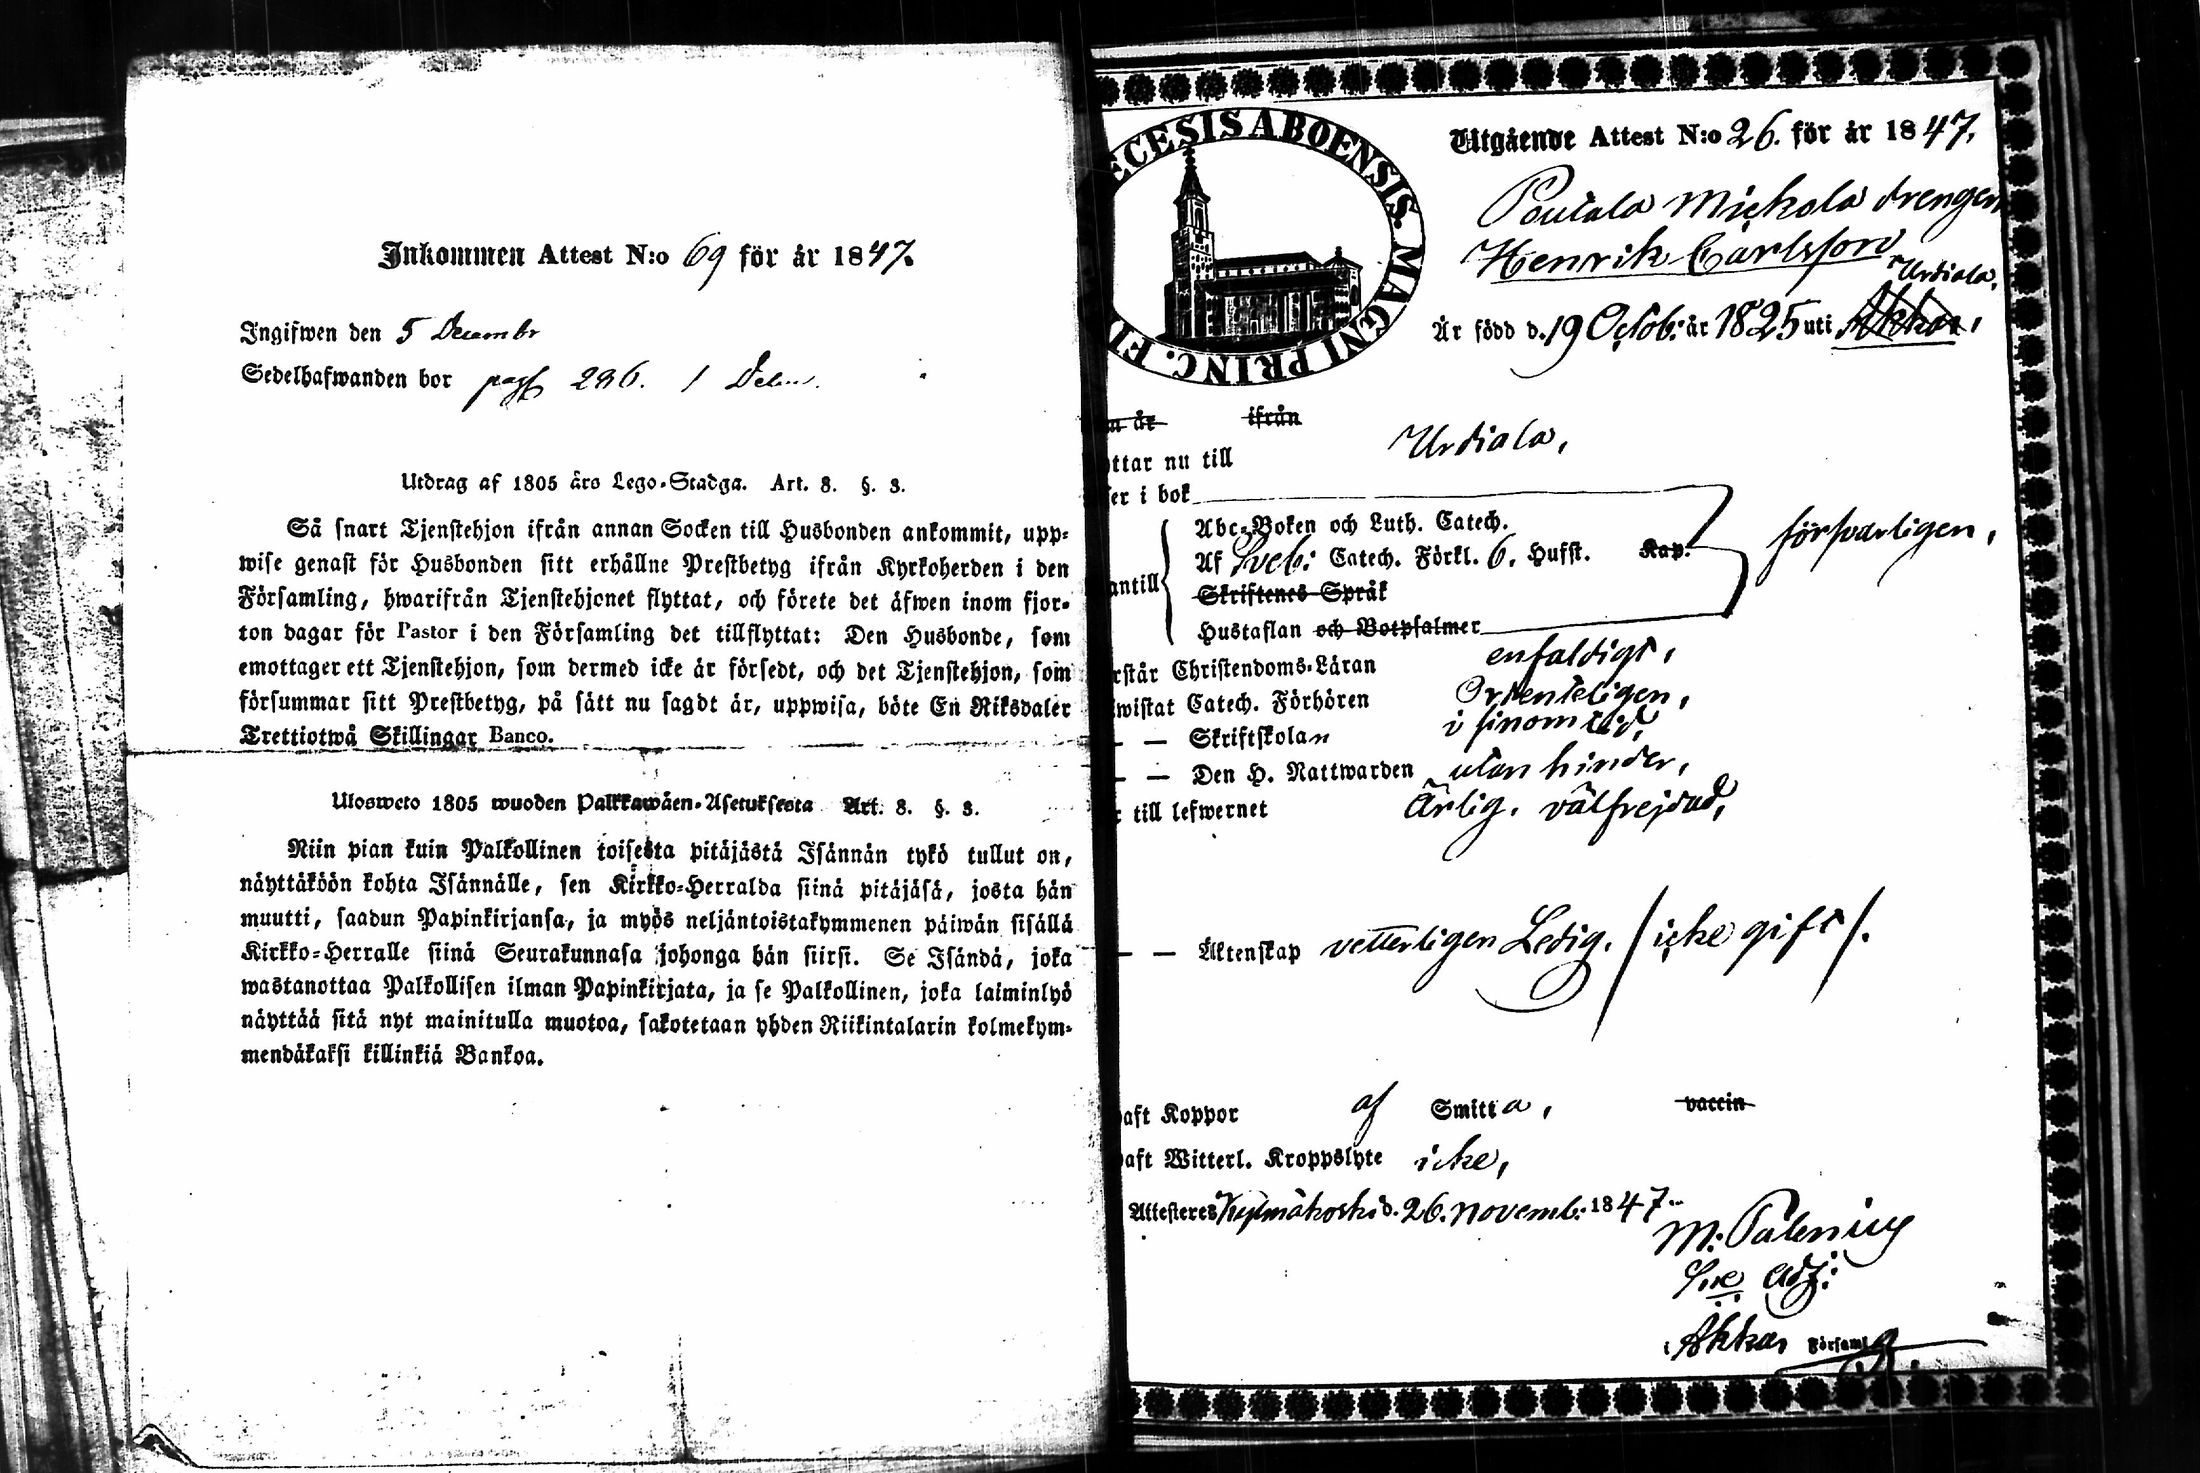 Inkommen Attest N:o 69 för år 1847.
Ingifwen den 5 Decembr
Sedelhafwanden bor pag 286. 1 Delen.
Utdrag af 1805 års Lego-Stadga. Art. 8. §. 3.
Så snart Tjenstehjon ifrån annan Socken till Husbonden ankommit, upp-
wise genast för Husbonden sitt erhållne Prestbetyg ifrån Kyrkoherden i den
Församling, hwarifrån Tjenstehjonet flyttat, och förete det äfwen inom fjor-
ton dagar för Pastor i den Församling det tillflyttat: Den Husbonde, som
emottager ett Tjenstehjon, som dermed icke är försedt, och det Tjenstehjon, som
försummar sitt Prestbetyg, på sätt nu sagdt är, uppwisa, böte En Riksdaler
Trettiotwå Skillingar Banco.
Ulosweto 1805 wuoden Palkkawäen-Asetuksesta Art. 8. §. 3.
Niin pian kuin Palkollinen toisesta pitäjästä Isännän tykö tullut on,
näyttäköön kohta Isännälle, sen Kirkko-Herralda siinä pitäjäsä, josta hän
muutti, saadun Papinkirjansa, ja myös neljäntoistakymmenen päiwän sisällä
Kirkko-Herralle siinä Seurakunnasa johonga hän siirsi. Se Isändä, joka
wastanottaa Palkollisen ilman Papinkirjata, ja se Palkollinen, joka laiminlyö
näyttää sitä nyt mainitulla muotoa, sakotetaan yhden Riikintalarin kolmekym-
mendäkaksi killinkiä Bankoa.
ECESIS ABOENSIS. MAGNI PRINC. FI
Utgående Attest N:o 26. för år 1847.
Poutala Mickola drengen
Henrik Carlsson
Urdiala.
Är född d. 19 Octob: år 1825 uti Akkas,
år ifrån
ttar nu till Urdiala,
er i bok
Abc-Boken och Luth. Catech.
försvarligen,
Af Sveb: Catech. Förkl. 6. Hufst. Kap.
antill
Skriftenes Språk
Hustaflan och Botpsalmer
rstår Christendoms-Läran enfaldigt,
wistat Catech. Förhören Ordenteligen,
— — Skriftskolan i sinom tid,
— — Den H. Nattwarden utan hinder,
till lefwernet Ärlig. välfrejdad,
— — Äktenskap vetterligen Ledig. /icke gift/.
aft Koppor af Smitta, vaccin
aft Witterl. Kroppslyte icke,
Attesteres Kylmäkoski d. 26. Novemb: 1847.
M: Palenius
Adj:
i Akkas Församl